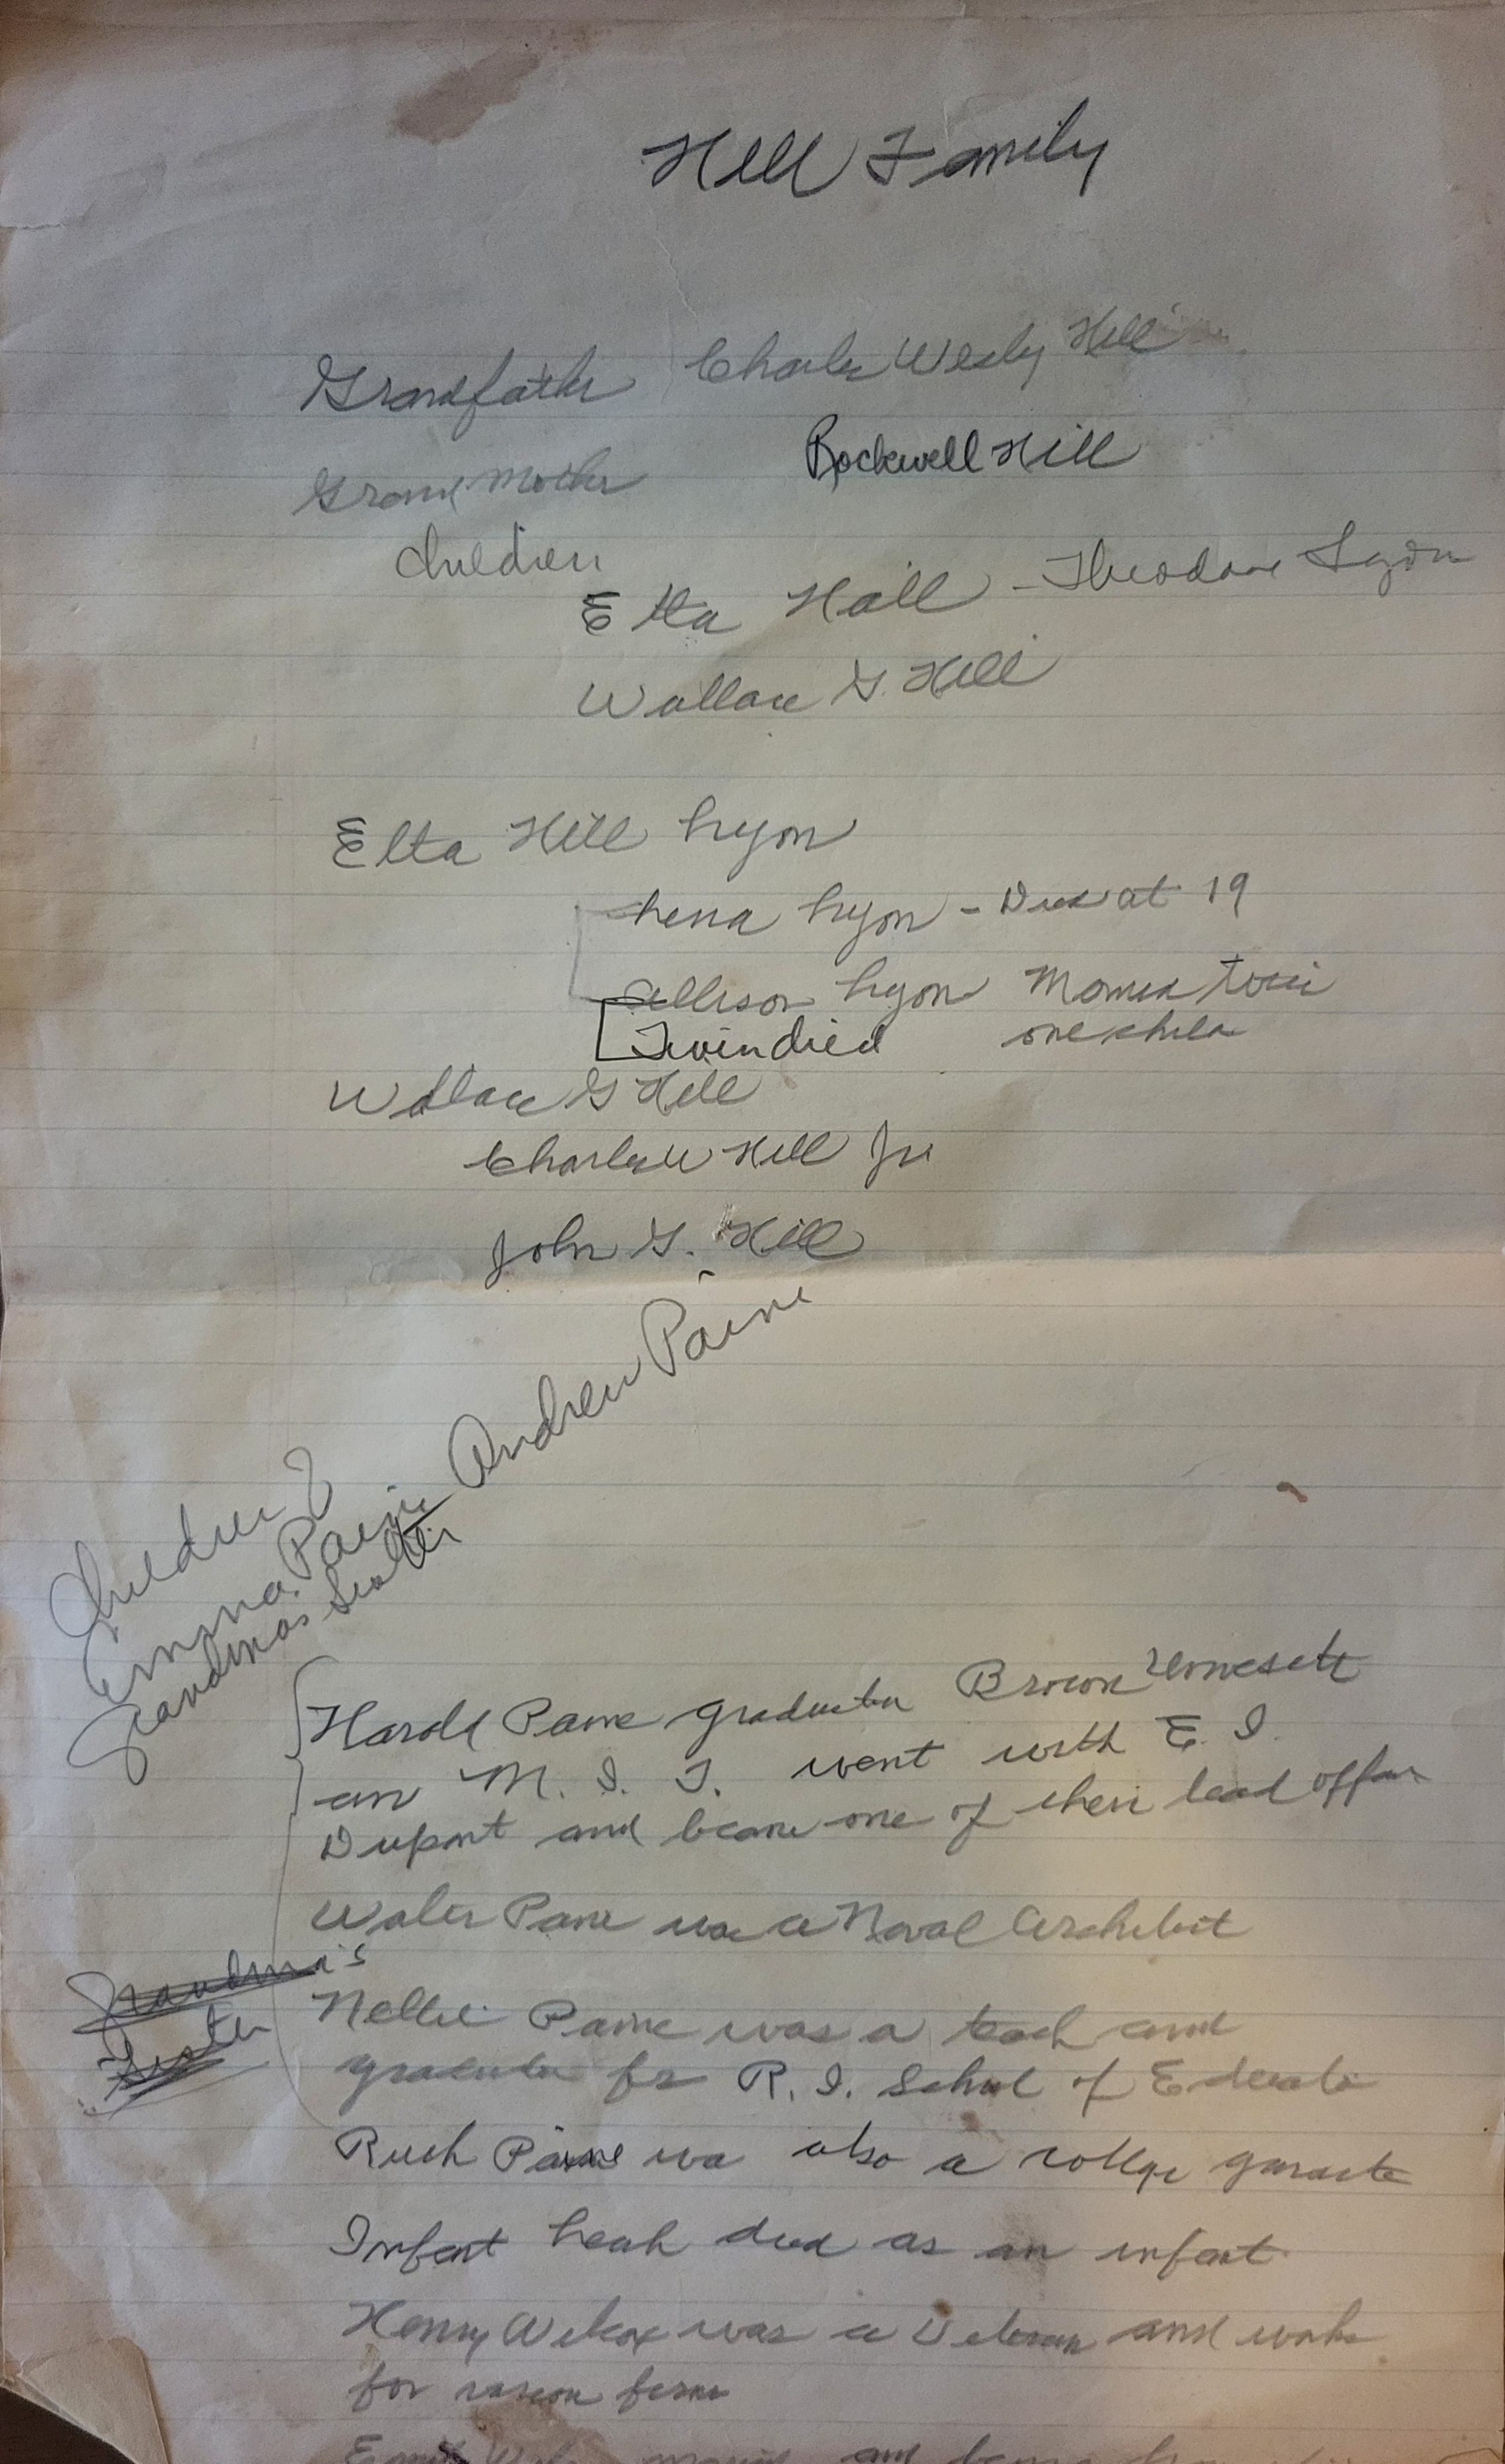 Hill Family
Grandfather Charles Wesley Hill
Grand Mother Rockwell Hill
Children
Etta Hill - Theodore Lyon
Wallace G. Hill
Etta Hill Lyon
Lena Lyon - Died at 19
Allison Lyon Married twice
Twin died one child
Wallace G Hill
Charles W Hill Jr
John G. Hill
Andrew Paine
Children of
Emma Paine
Grandmas Sister
Harold Paine graduated Brown University
an M. I. T. went with E. I.
Dupont and became one of their lead
Walter Paine was a Naval Architect
Grandma's
Sister
Nellie Paine was a teach and
graduate R. I. School of Education
Ruth Paine was also a college
Infant Leah died as an infant
Henry Wilcox was a Veteran and works
for various firms
and